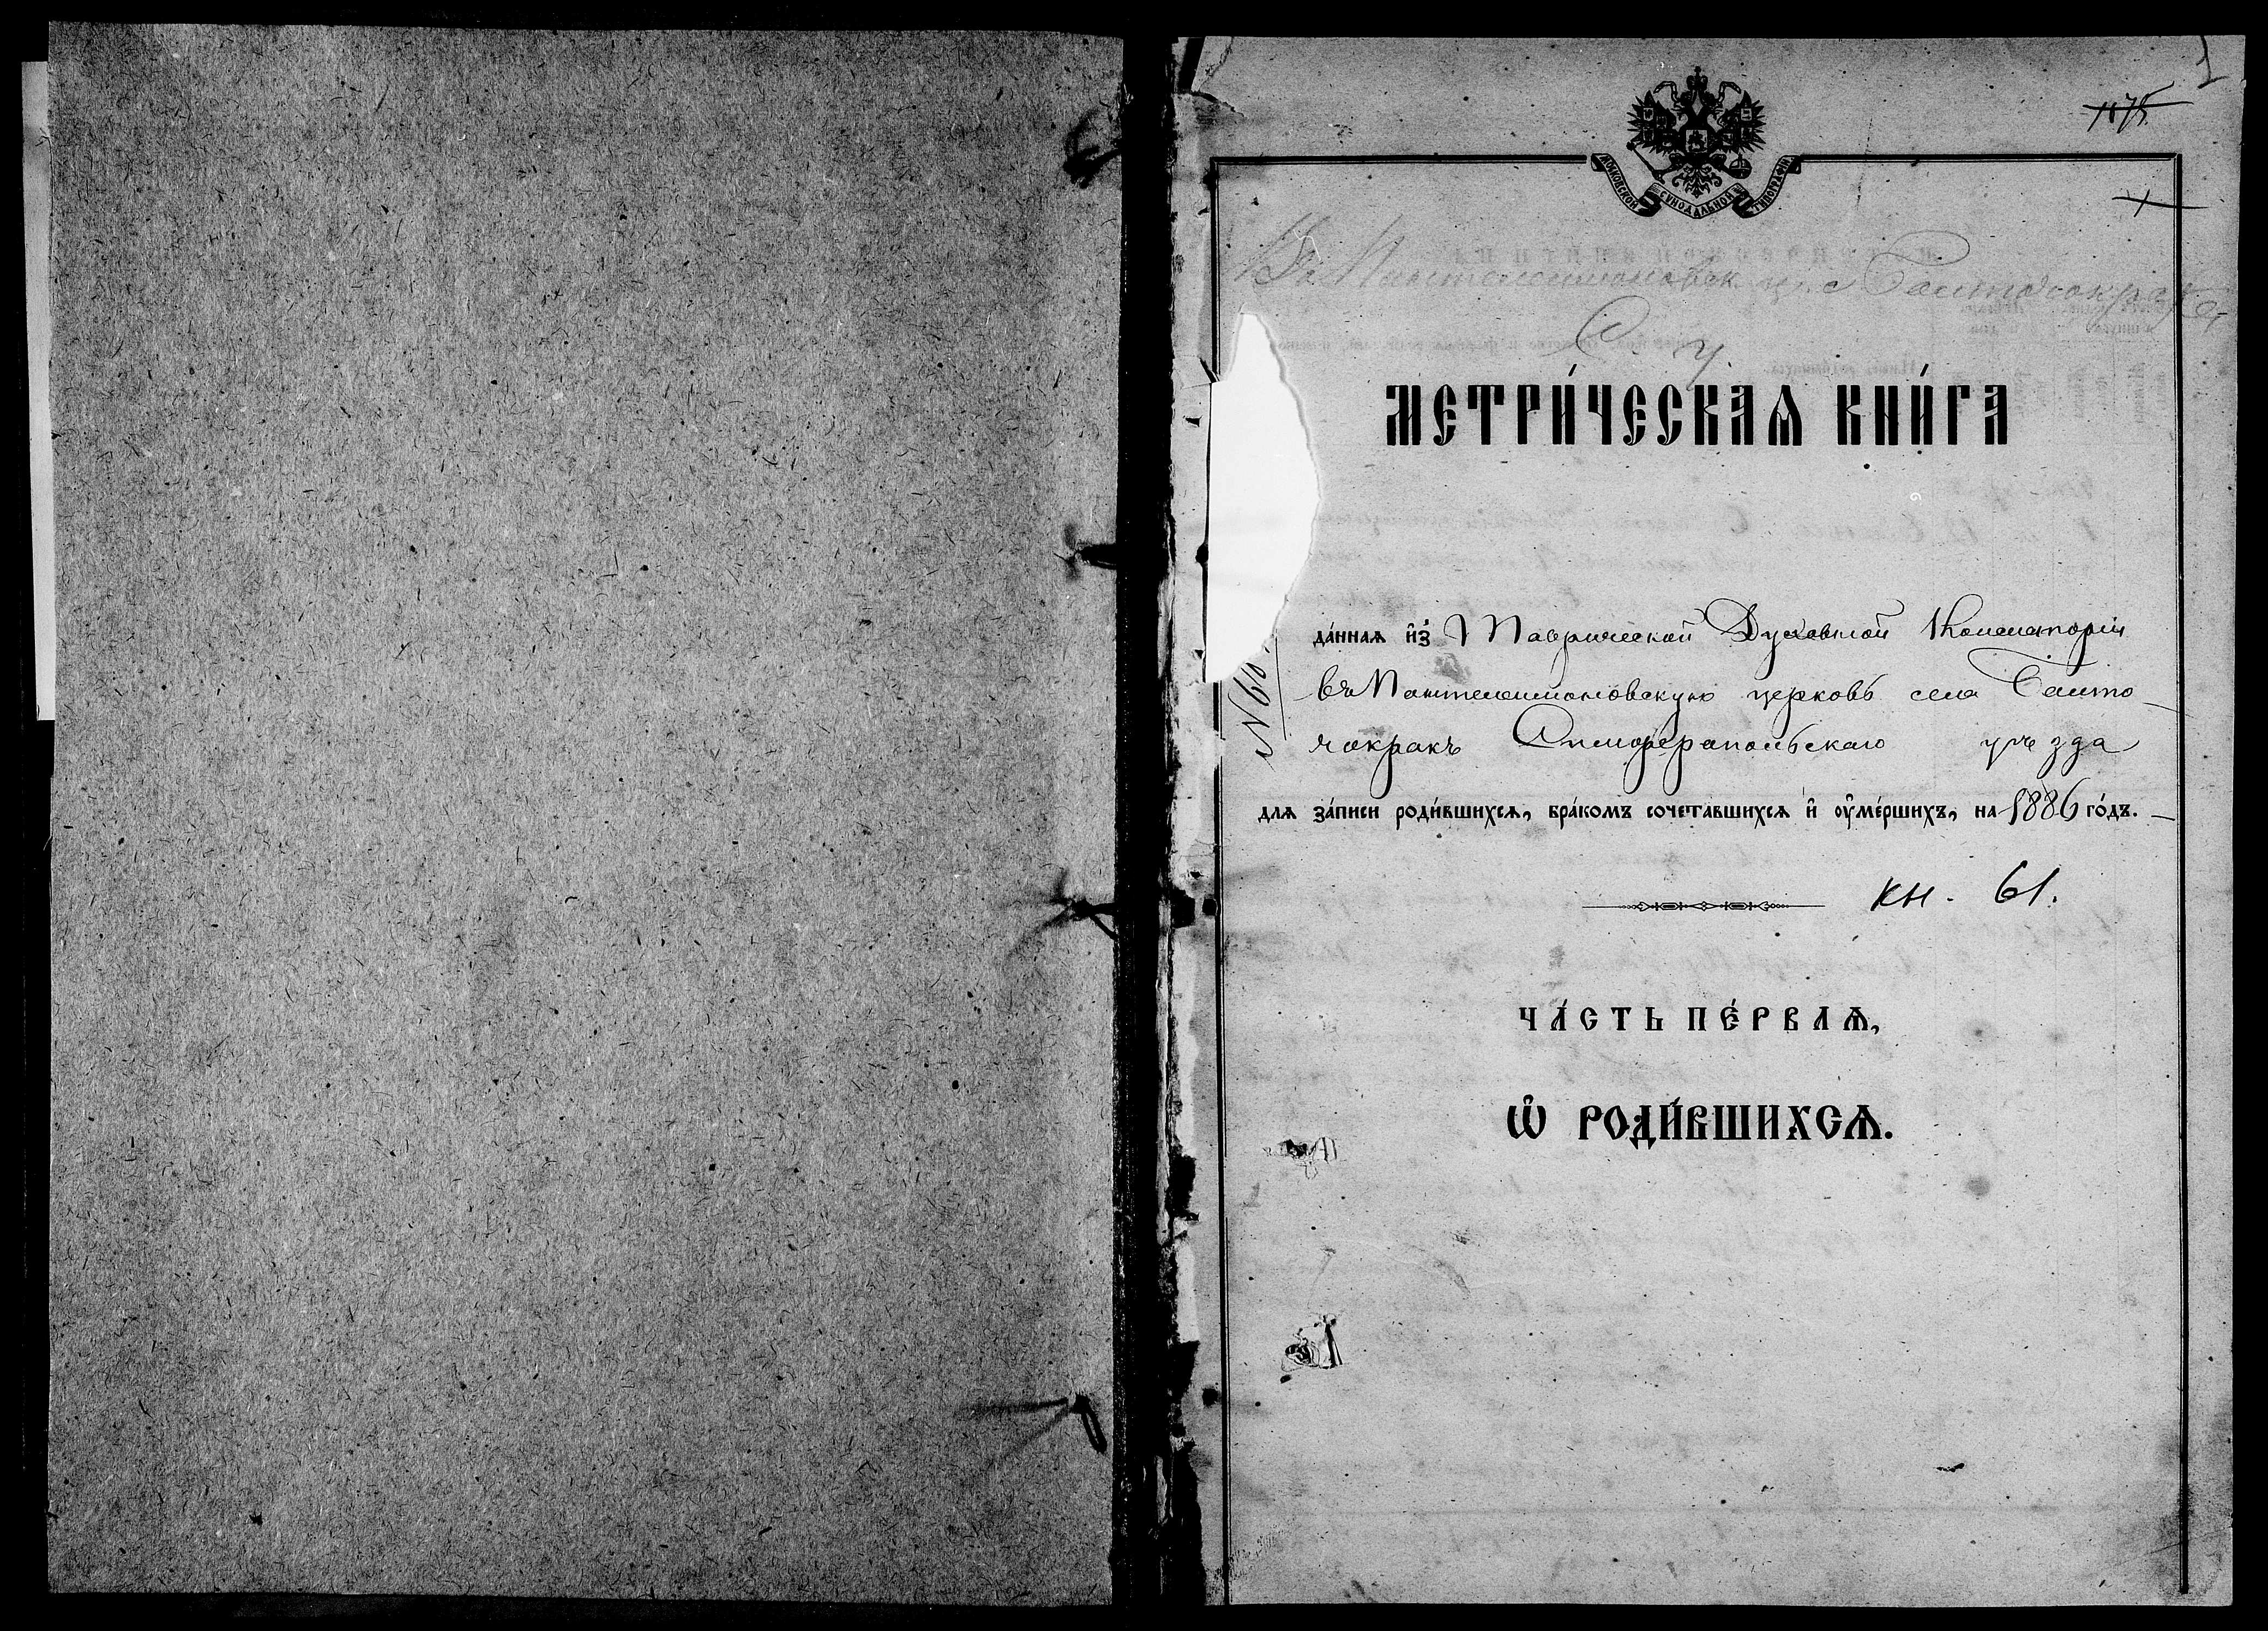 1
1175
МОСКОВСКОЙ СѴНОДАЛЬНОЙ ТИПОГРАФІИ
Въ Пантелеимоновск. ц. с
С. у.
МЕТРИ́ЧЕСКАѦ КНИ́ГА
да́ннаѧ и҆з̾ Таврической Духовной Консисторіи
въ Пантелеимоновскую церковь села
Симферопольскаго уѣзда
длѧ за́писи роди́вшихсѧ, бра́комъ сочетавшихсѧ и҆ ᲂу҆ме́ршихъ, на 1886 го́дъ.
кн. 61.
ЧА́СТЬ ПЕ́РВАѦ,
Ѡ҆ РОДИ́ВШИХСѦ.